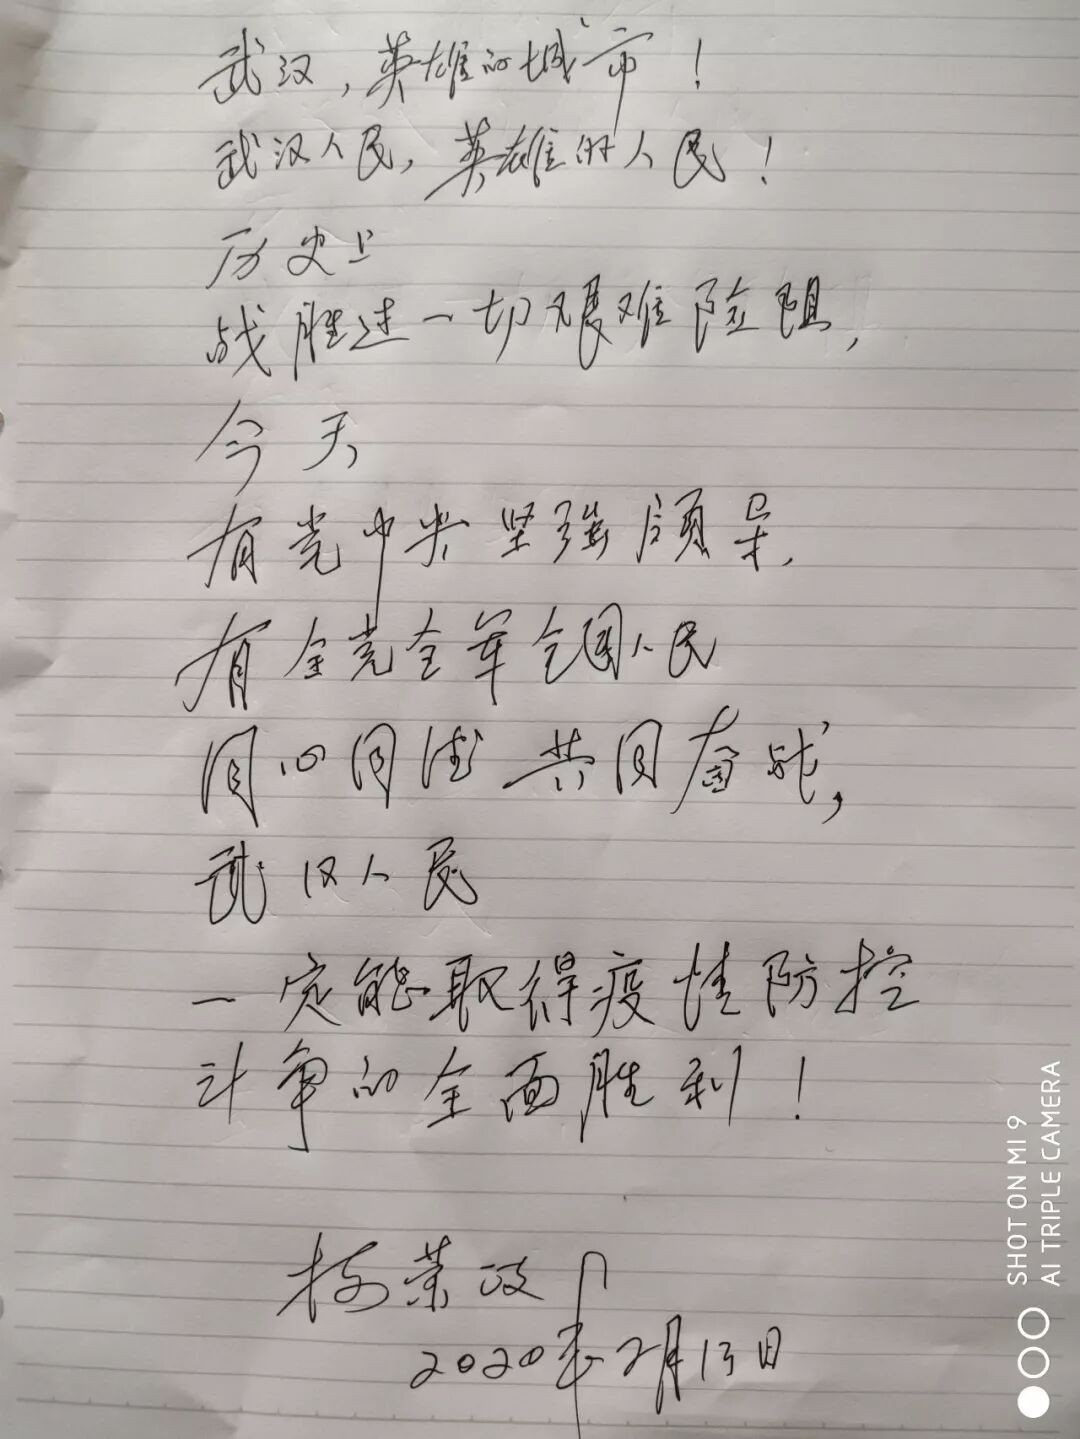 武汉，英雄的城市！
武汉人民，英雄的人民！
历史上
战胜过一切艰难险阻，
今天
有党中央坚强领导，
有全党全军全国人民
同心同德 共同奋战，
武汉人民
一定能取得疫情防控
斗争的全面胜利！
荣政
2020年2月13日
SHOT ON MI 9
AI TRIPLE CAMERA